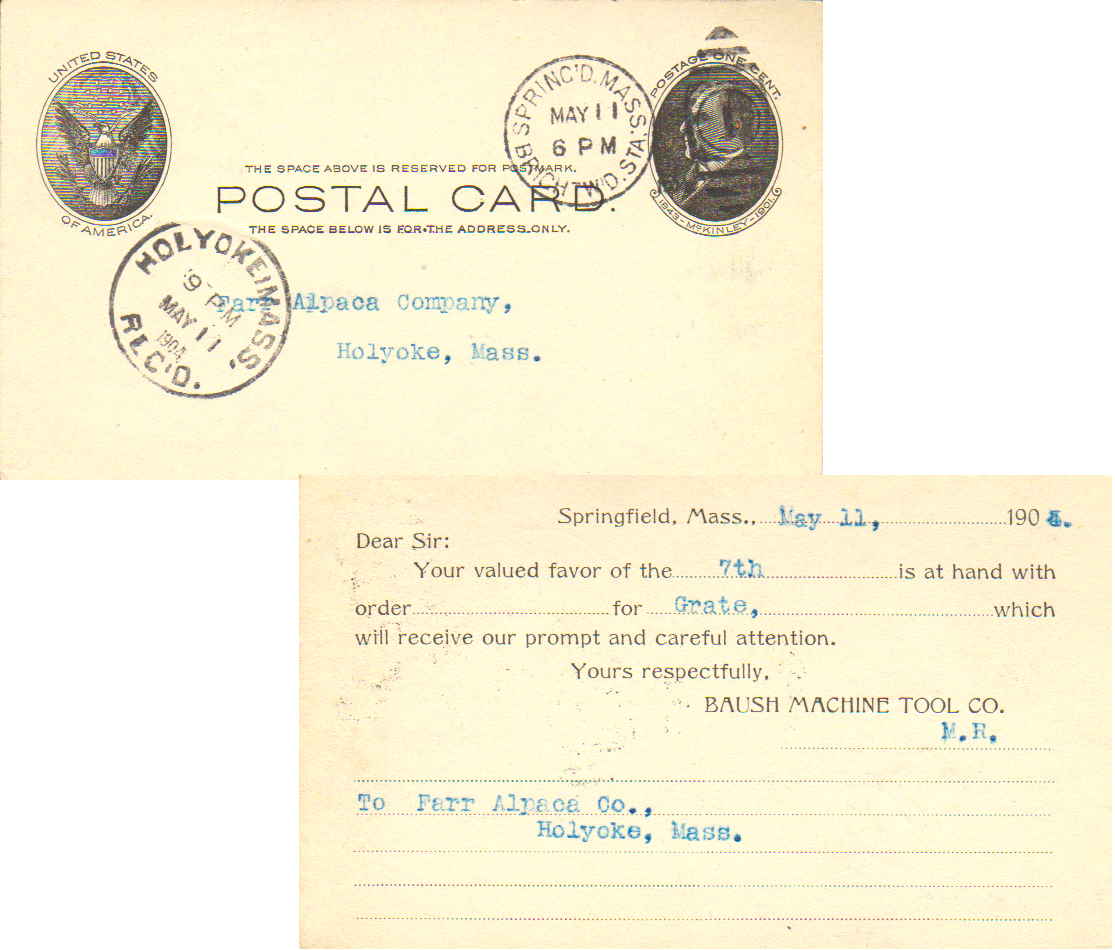 UNITED STATES
OF AMERICA.
SPRINC'D. MASS.
MAY 11
6 PM
BRIGHTW'D. STA.
POSTAGE ONE CENT.
1843-McKINLEY-1901.
THE SPACE ABOVE IS RESERVED FOR POSTMARK.
POSTAL CARD.
THE SPACE BELOW IS FOR THE ADDRESS ONLY.
HOLYOKE, MASS.
9 PM
MAY 11
1904
REC'D.
Farr Alpaca Company,
Holyoke, Mass.
Springfield, Mass., May 11, 1904.
Dear Sir:
Your valued favor of the 7th is at hand with
order for Grate, which
will receive our prompt and careful attention.
Yours respectfully,
BAUSH MACHINE TOOL CO.
M.R.
To Farr Alpaca Co.,
Holyoke, Mass.